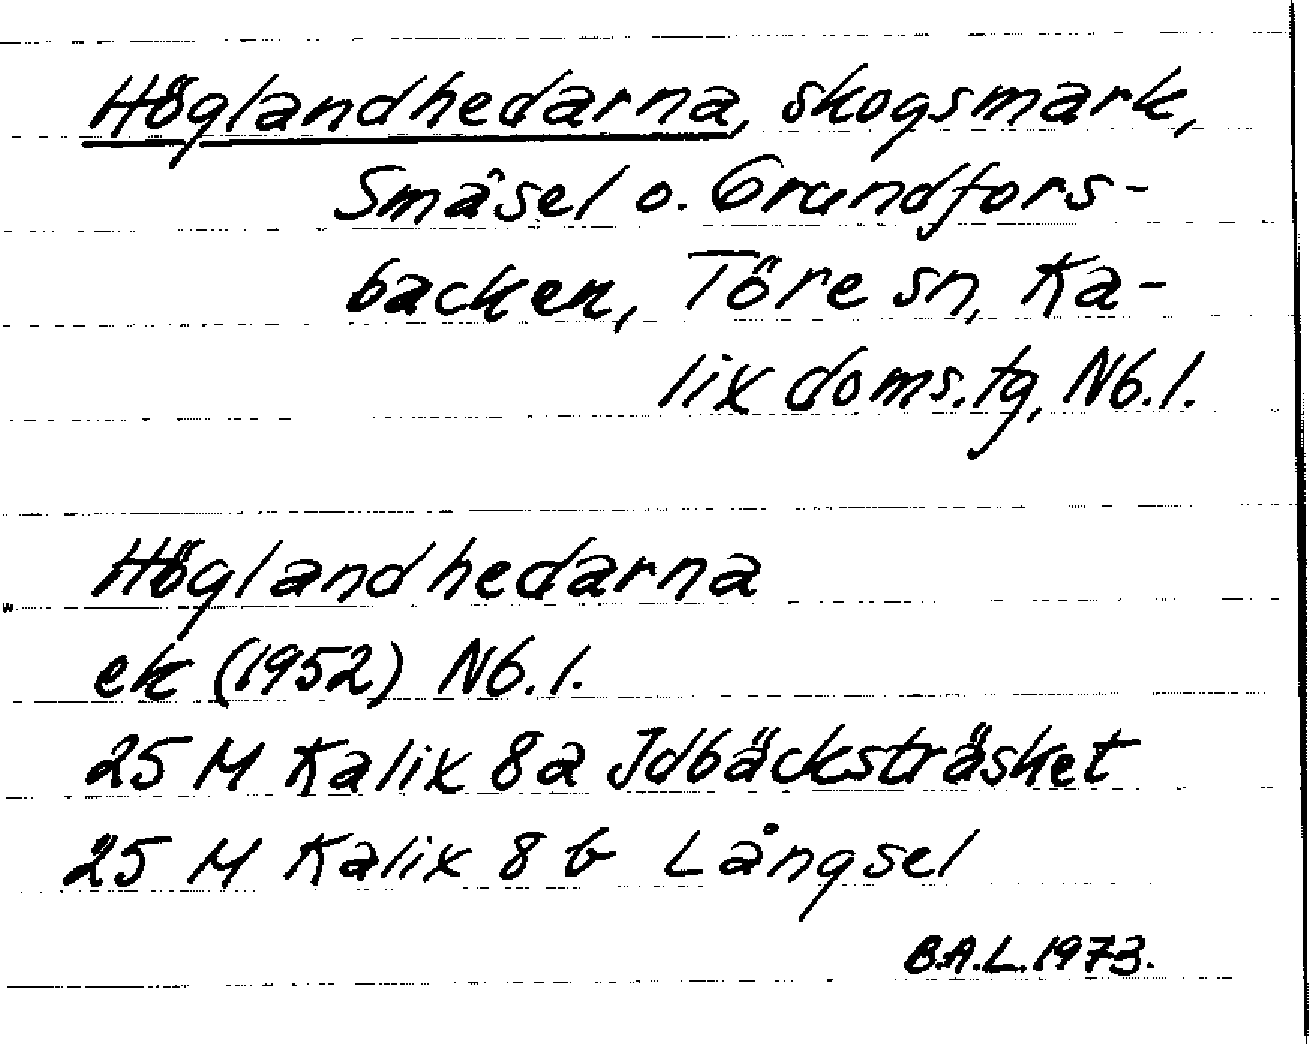 Höglandhedarna, skogsmark,
Småsel o. Grundfors-
backen, Töre sn, Ka-
lix doms.tg, Nb.l.
Höglandhedarna
ek (1952) Nb.l.
25 M Kalix 8a Idbäcksträsket
25 M Kalix 8b Långsel
B.A.L. 1973.